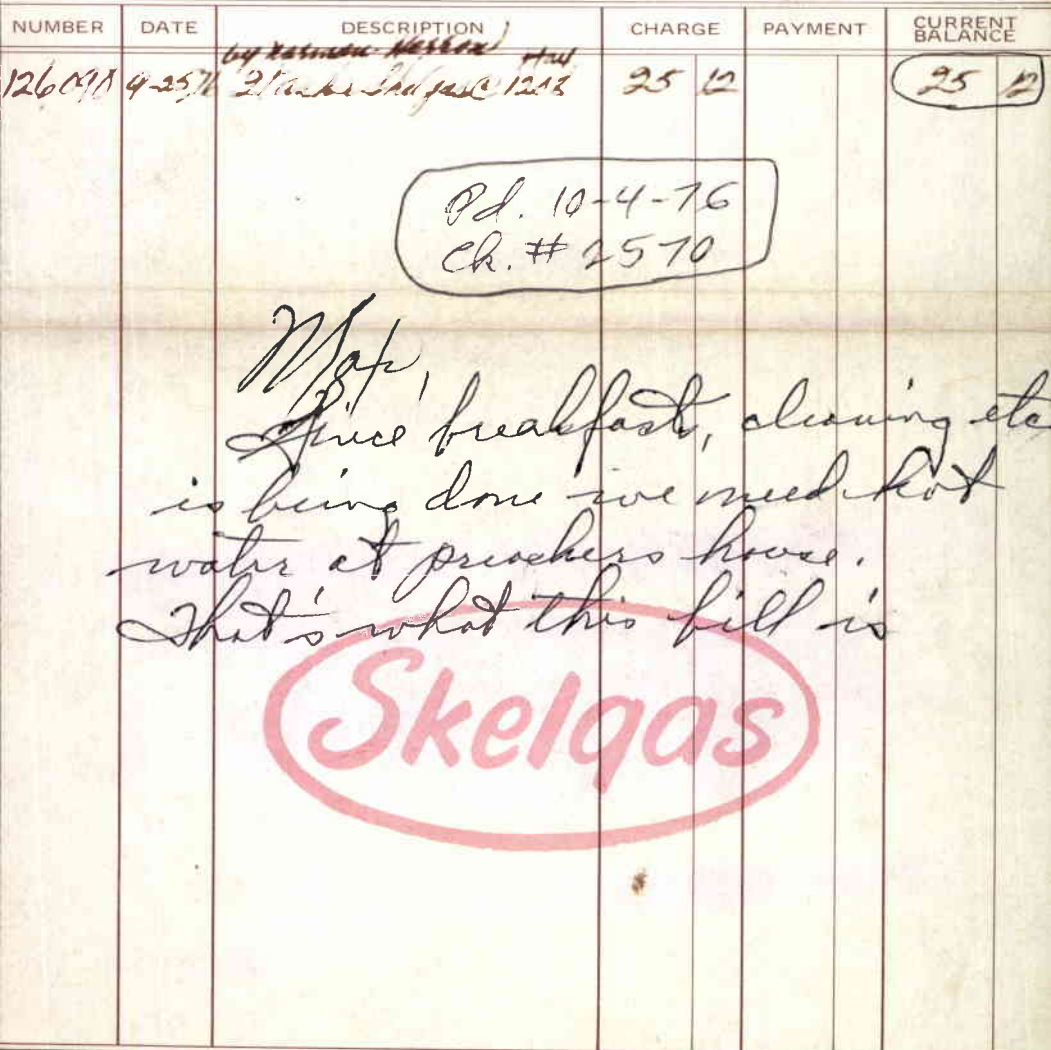 NUMBER DATE DESCRIPTION CHARGE PAYMENT CURRENT BALANCE
by
9-25 @ 25 12 25 12
Pd. 10-4-76
Ck. # 2570
Since breakfast, cleaning etc
is being done we need hot
water at preachers house.
That's what this bill is
Skelgas